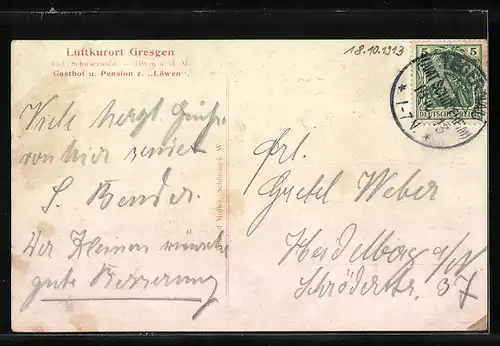 Luftkurort Gresgen
bad. Schwarzwald. — m ü. d. M.
Gasthof u. Pension z. „Löwen".
18.10.1913
5 5
DEUTSCHES REICH
* 1-7 V *
Viele herzl. Grüße
von hier sendet
S. Bender.
Der Kleinen wünsche
gute Besserung
Frl.
Gretel Weber
Heidelberg a/N
Schröderstr. 37